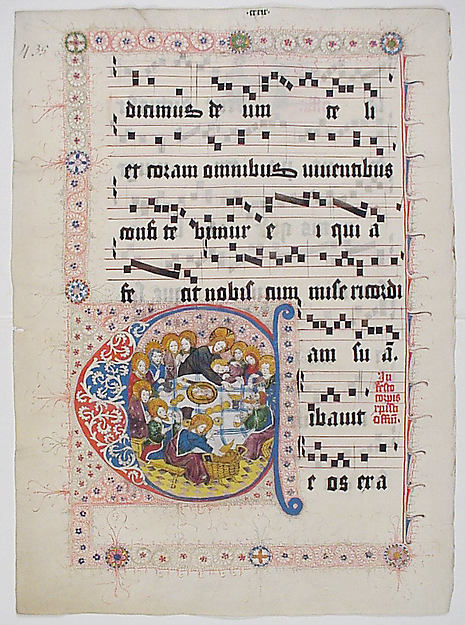 dicimus de um ce li
et coram omnibus uiuentibus
confi te bimur e i qui a
fe cit nobis cum mise ricordi
am su ā.
In
festo
corpis
cristi
ibauit
e os ex a